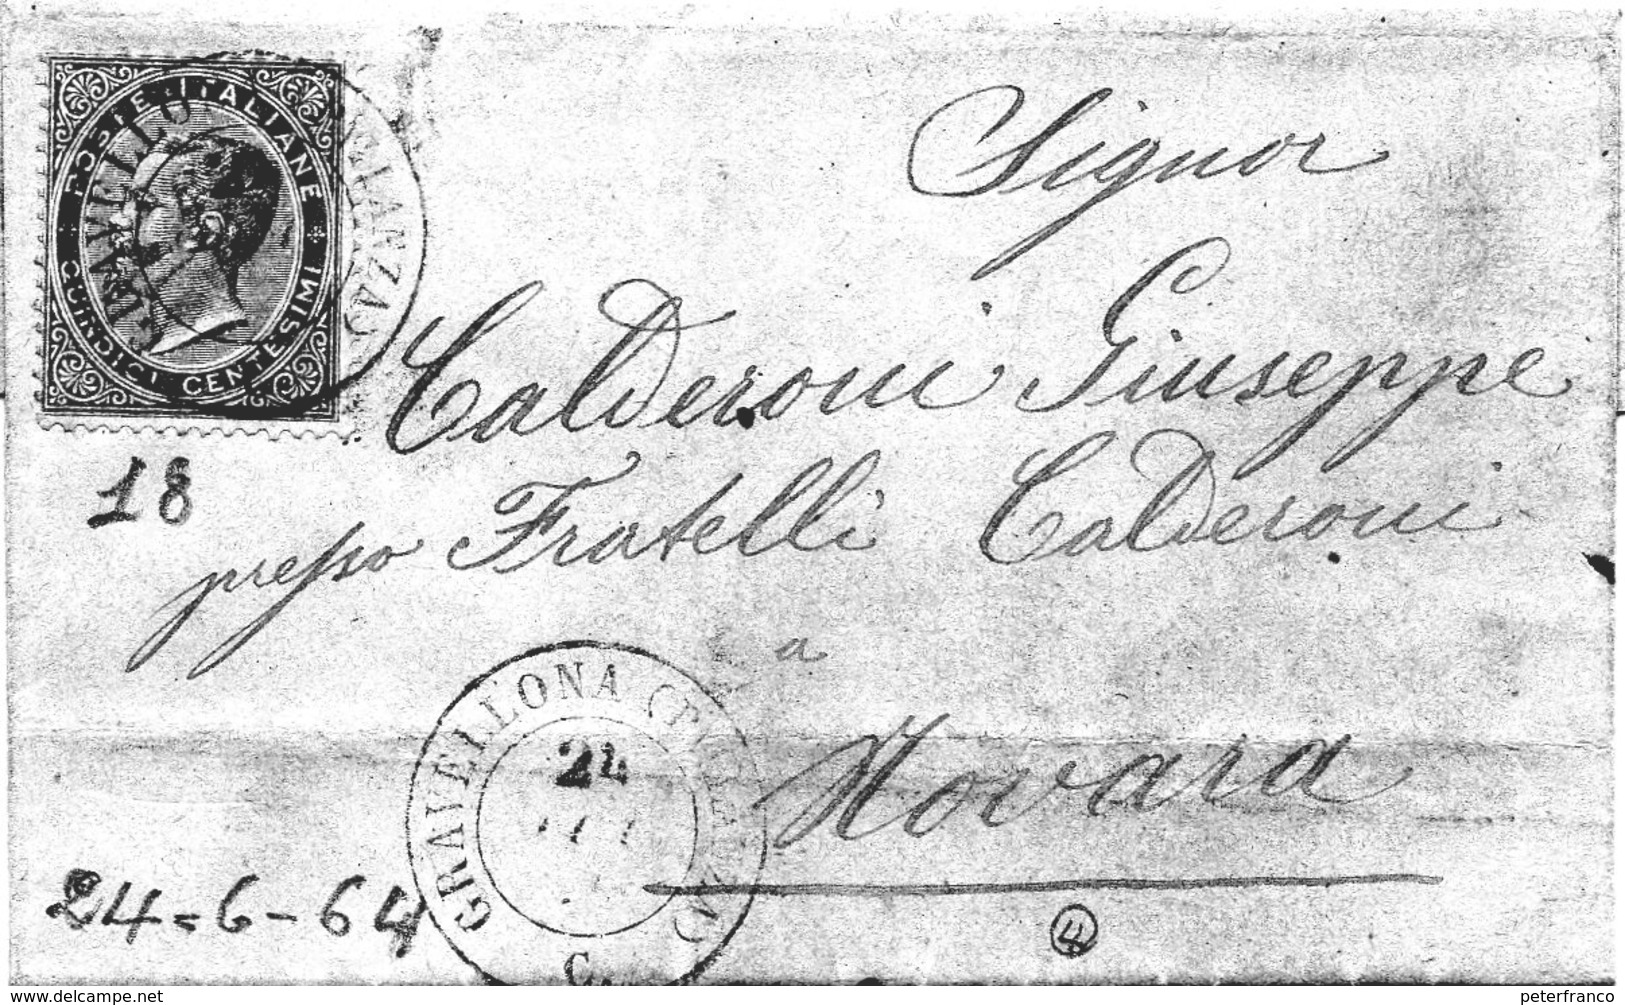 POSTE ITALIANE
QUINDICI CENTESIMI
Signor
Calderoni Giuseppe
18
presso Fratelli Calderoni
a
Novara
GRAVELLONA
24
C.
24-6-64
4
www.delcampe.net
peterfranco